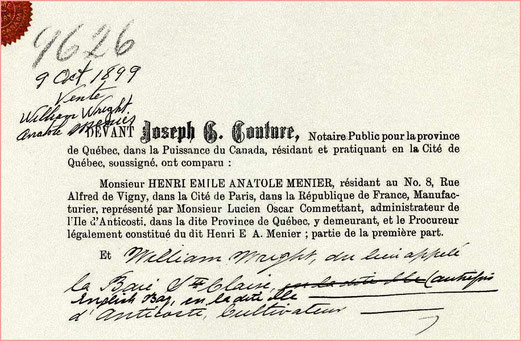 9626
9 Oct 1899
Vente
William Wright
Anatole Menier
DEVANT Joseph G. Couture, Notaire Public pour la province
de Québec, dans la Puissance du Canada, résidant et pratiquant en la Cité de
Québec, soussigné. ont comparu :
Monsieur HENRI EMILE ANATOLE MENIER, résidant au No. 8, Rue
Alfred de Vigny, dans la Cité de Paris, dans la République de France, Manufac-
turier, représenté par Monsieur Lucien Oscar Commettant, administrateur de
l'Ile d'Anticosti, dans la dite Province de Québec, y demeurant, et le Procureur
légalement constitué du dit Henri E A. Menier ; partie de la première part.
Et William Wright, du lieu appelé
la Baie Ste Claire, en la dite Ile (autrefois
English Bay, en la dite Ile
d'Anticoste, Cultivateur